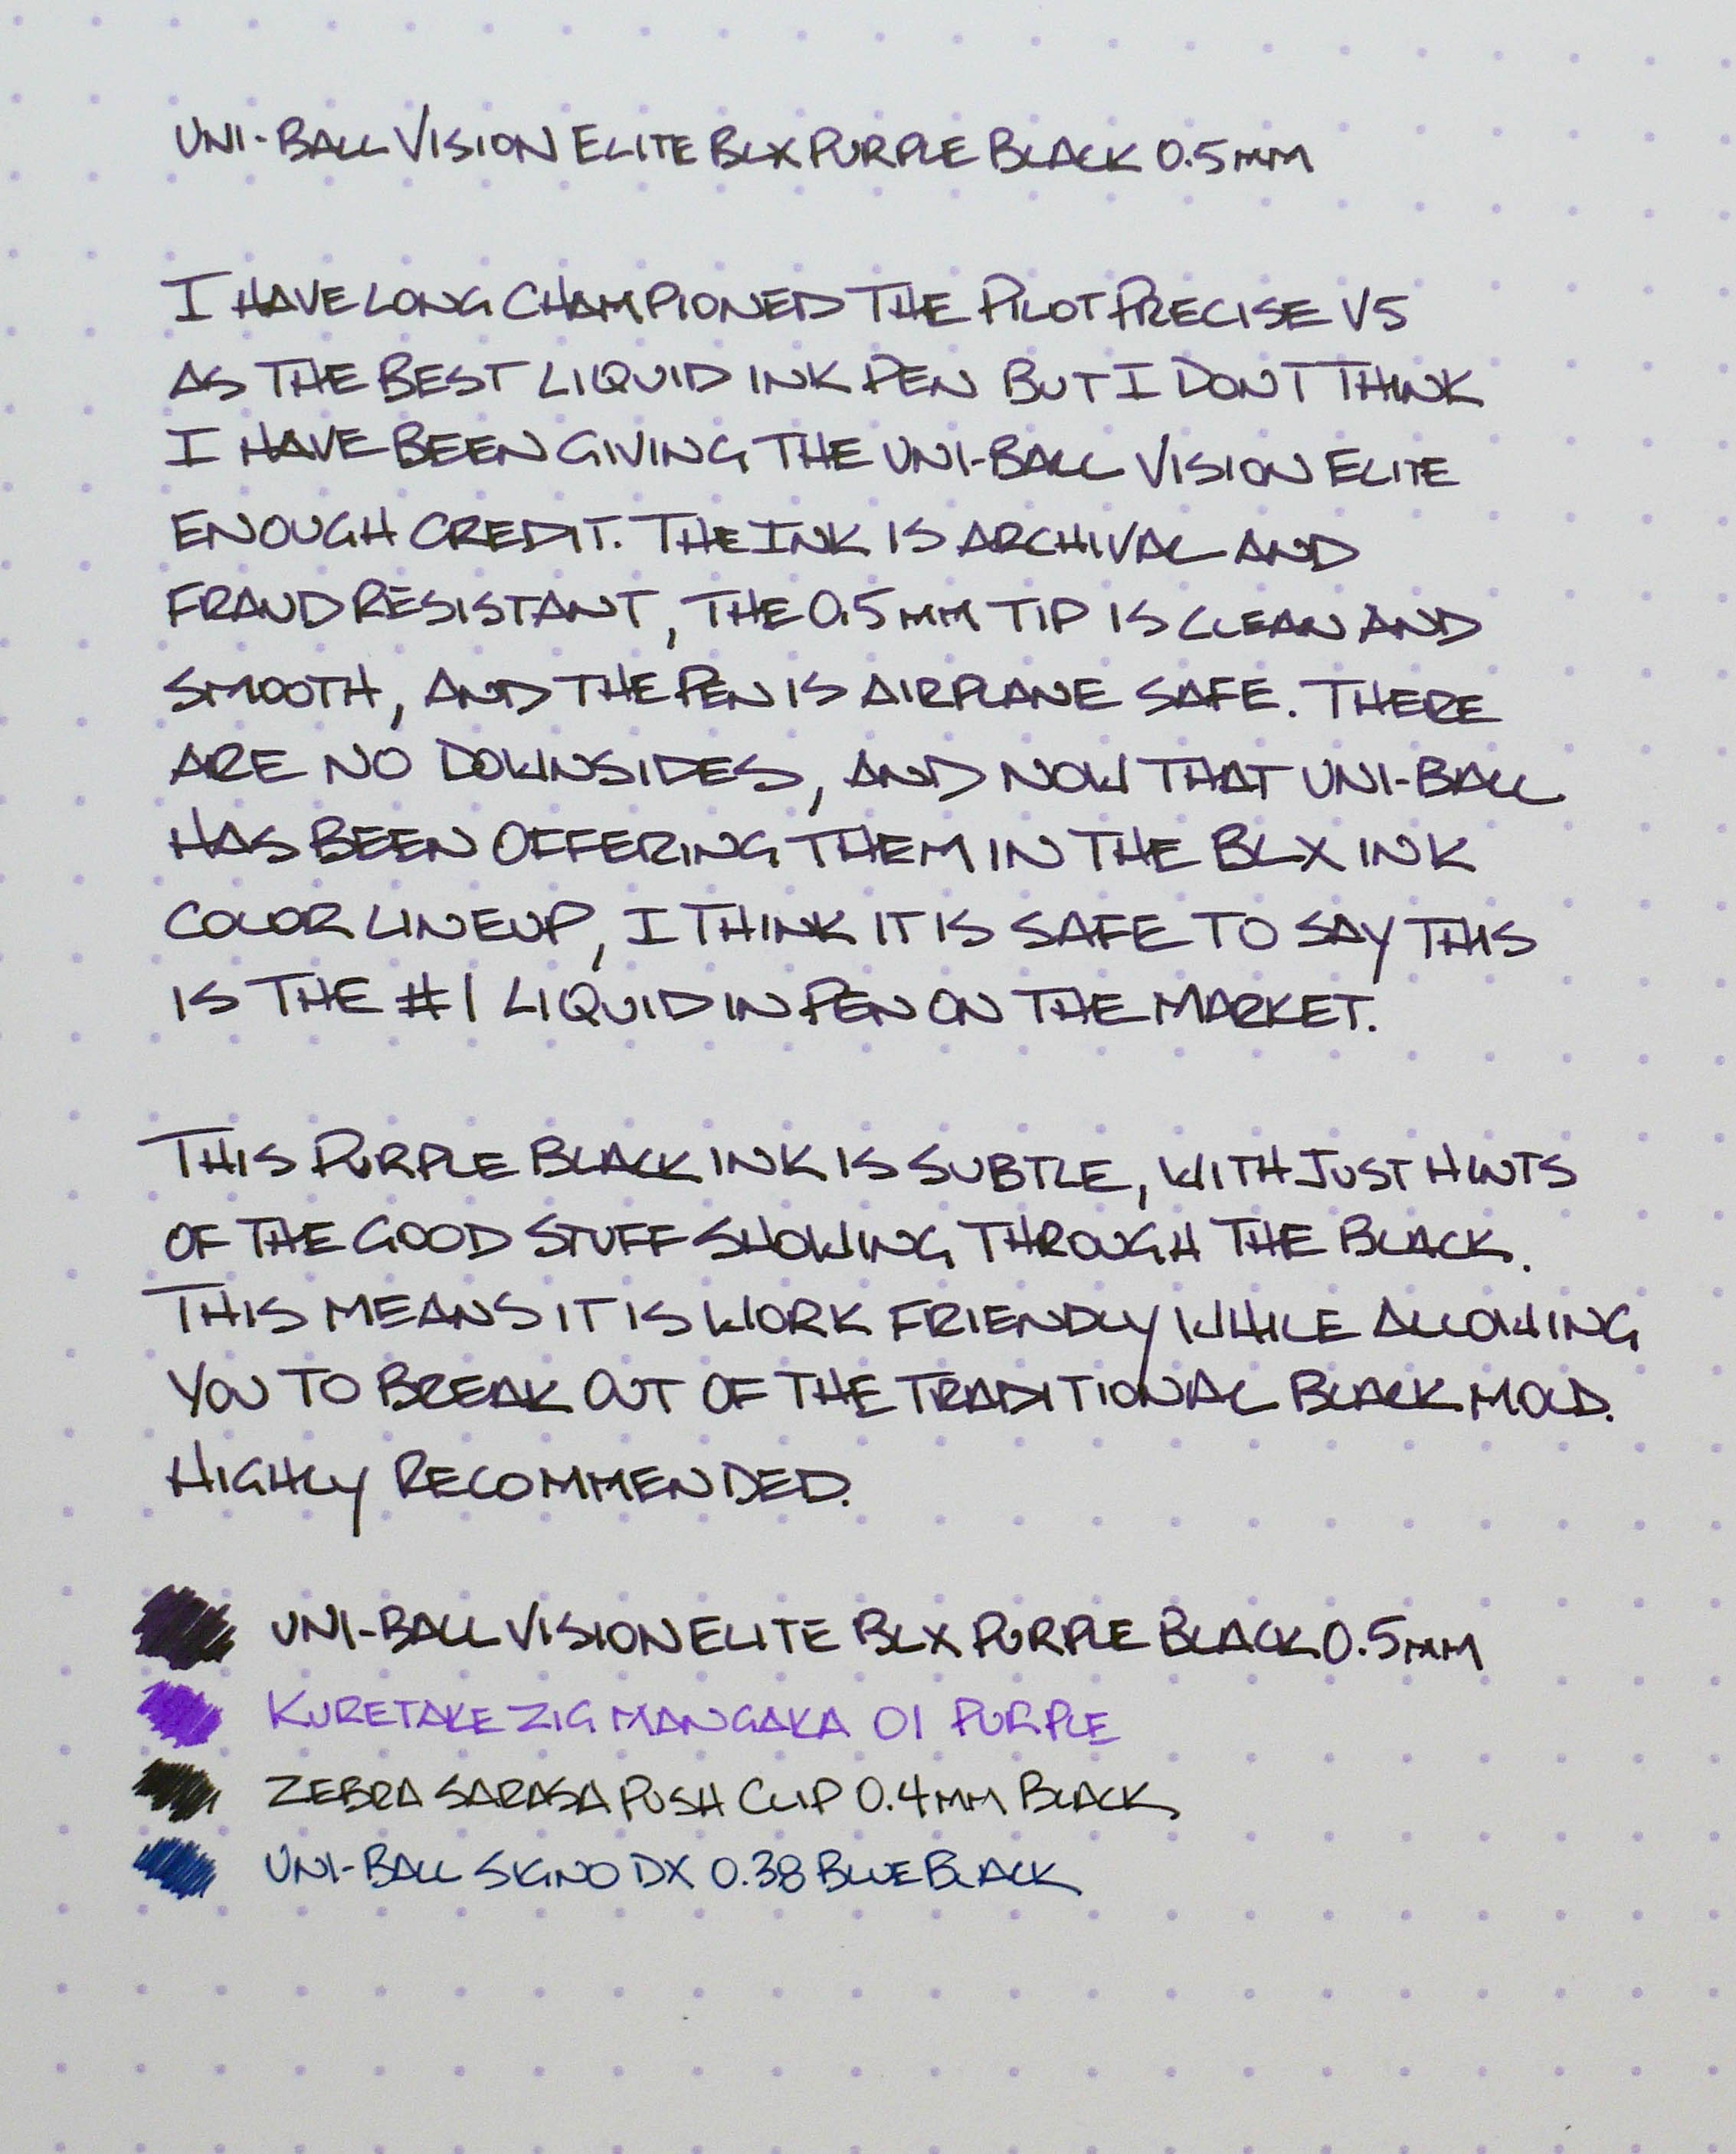 UNI-BALL VISION ELITE BLX PURPLE BLACK 0.5MM
I HAVE LONG CHAMPIONED THE PILOT PRECISE V5
AS THE BEST LIQUID INK PEN BUT I DON'T THINK
I HAVE BEEN GIVING THE UNI-BALL VISION ELITE
ENOUGH CREDIT. THE INK IS ARCHIVAL AND
FRAUD RESISTANT, THE 0.5MM TIP IS CLEAN AND
SMOOTH, AND THE PEN IS AIRPLANE SAFE. THERE
ARE NO DOWNSIDES, AND NOW THAT UNI-BALL
HAS BEEN OFFERING THEM IN THE BLX INK
COLOR LINEUP, I THINK IT IS SAFE TO SAY THIS
IS THE #1 LIQUID IN PEN ON THE MARKET.
THIS PURPLE BLACK INK IS SUBTLE, WITH JUST HINTS
OF THE GOOD STUFF SHOWING THROUGH THE BLACK.
THIS MEANS IT IS WORK FRIENDLY WHILE ALLOWING
YOU TO BREAK OUT OF THE TRADITIONAL BLACK MOLD.
HIGHLY RECOMMENDED.
UNI-BALL VISION ELITE BLX PURPLE BLACK 0.5MM
KURETAKE ZIG MANGAKA 01 PURPLE
ZEBRA SARASA PUSH CLIP 0.4MM BLACK
UNI-BALL SIGNO DX 0.38 BLUE BLACK